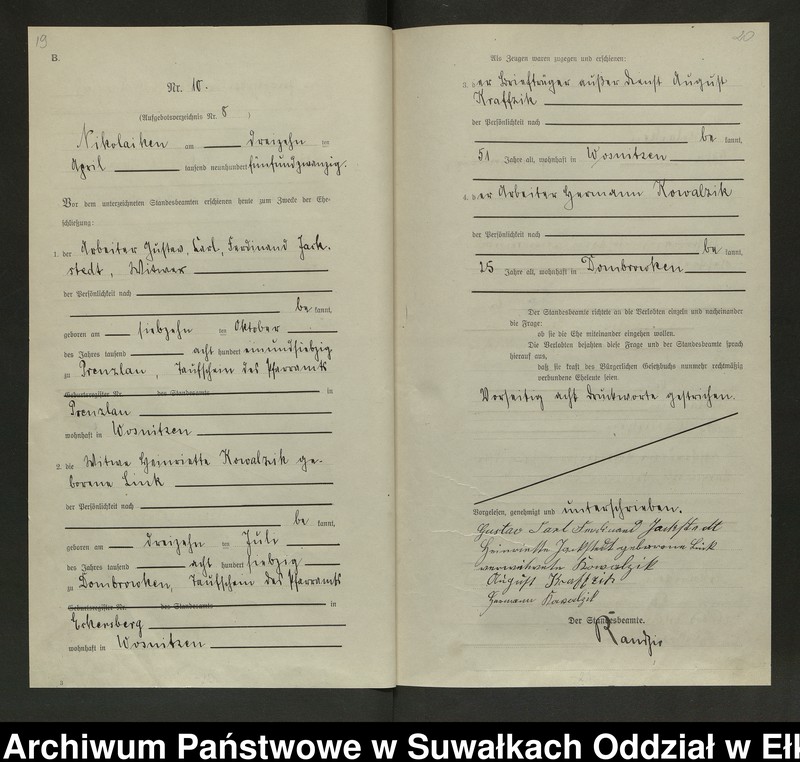 19
B.
Nr. 10.
(Aufgebotsverzeichnis Nr. 8)
Nikolaiken am dreizehn ten
April tausend neunhundert fünfundzwanzig.
Vor dem unterzeichneten Standesbeamten erschienen heute zum Zwecke der Ehe-
schließung:
1. der Arbeiter Gustav, Carl, Ferdinand Jack-
stedt, Witwer
der Persönlichkeit nach
be kannt,
geboren am siebzehn ten Oktober
des Jahres tausend acht hundert einundsiebzig
zu Prenzlau, Taufschein des Pfarramts
Geburtsregister Nr. des Standesamts in
Prenzlau
wohnhaft in Wosnitzen
2. die Witwe Heinriette Kowalzik ge-
borene Link
der Persönlichkeit nach
be kannt,
geboren am dreizehn ten Juli
des Jahres tausend acht hundert siebzig
zu Dombrowken, Taufschein des Pfarramts
Geburtsregister Nr. des Standesamts in
Eckersberg
wohnhaft in Wosnitzen
20
Als Zeugen waren zugegen und erschienen:
3. der Briefträger außer Dienst August
Kraffzik
der Persönlichkeit nach
be kannt,
51 Jahre alt, wohnhaft in Wosnitzen
4. der Arbeiter Hermann Kowalzik
der Persönlichkeit nach
be kannt,
25 Jahre alt, wohnhaft in Dombrowken
Der Standesbeamte richtete an die Verlobten einzeln und nacheinander
die Frage:
ob sie die Ehe miteinander eingehen wollen.
Die Verlobten bejahten diese Frage und der Standesbeamte sprach
hierauf aus,
daß sie kraft des Bürgerlichen Gesetzbuchs nunmehr rechtmäßig
verbundene Eheleute seien.
Vorseitig acht Druckworte gestrichen.
Vorgelesen, genehmigt und unterschrieben.
Gustav Carl Ferdinand Jackstedt
Heinriette Jackstedt geborene Link
verwitwete Kowalzik
August Kraffzik
Hermann Kowalzik
Der Standesbeamte.
Archiwum Państwowe w Suwałkach Oddział w Ełk